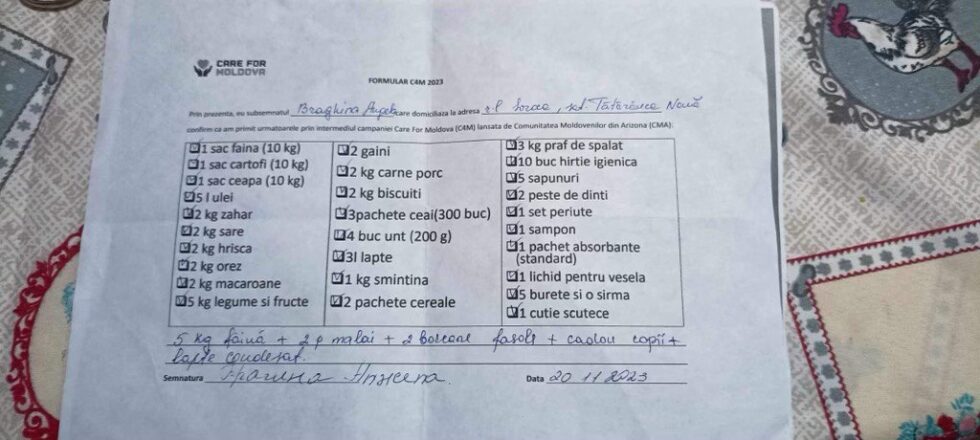 CARE FOR
MOLDOVA
FORMULAR C4M 2023
Prin prezenta, eu subsemnatul Braghina Angela care domiciliaza la adresa r-l Soroca, sat. Tătărăuca Nouă
confirm ca am primit urmatoarele prin intermediul campaniei Care For Moldova (C4M) lansata de Comunitatea Moldovenilor din Arizona (CMA):
1 sac faina (10 kg)
1 sac cartofi (10 kg)
1 sac ceapa (10 kg)
5 l ulei
2 kg zahar
2 kg sare
2 kg hrisca
2 kg orez
2 kg macaroane
5 kg legume si fructe
2 gaini
2 kg carne porc
2 kg biscuiti
3pachete ceai(300 buc)
4 buc unt (200 g)
3l lapte
1 kg smintina
2 pachete cereale
3 kg praf de spalat
10 buc hirtie igienica
5 sapunuri
2 peste de dinti
1 set periute
1 sampon
1 pachet absorbante
(standard)
1 lichid pentru vesela
5 burete si o sirma
1 cutie scutece
5 kg făină + 2 p malai + 2 borcane fasole + cadou copii +
lapte condesat.
Semnatura
Data 20 11 2023